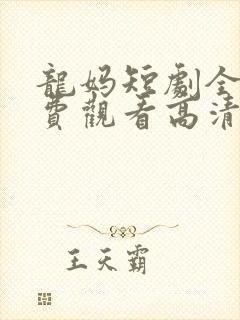 龍媽短劇全
費觀看高清
王天霸